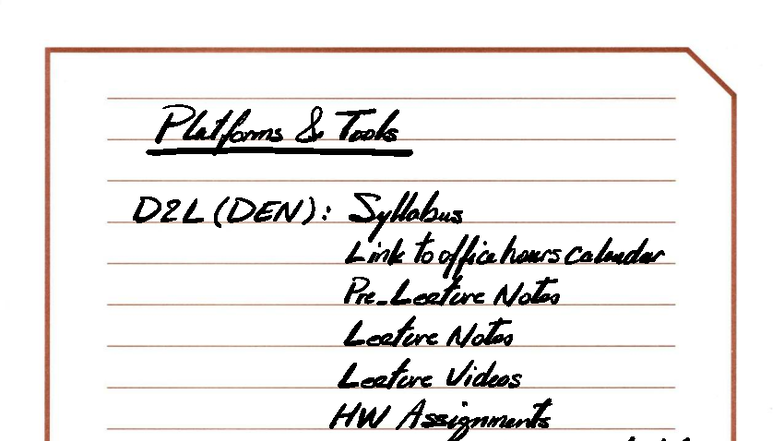 Platforms & Tools
D2L (DEN): Syllabus
Link to office hours calendar
Pre-Lecture Notes
Lecture Notes
Lecture Videos
HW Assignments